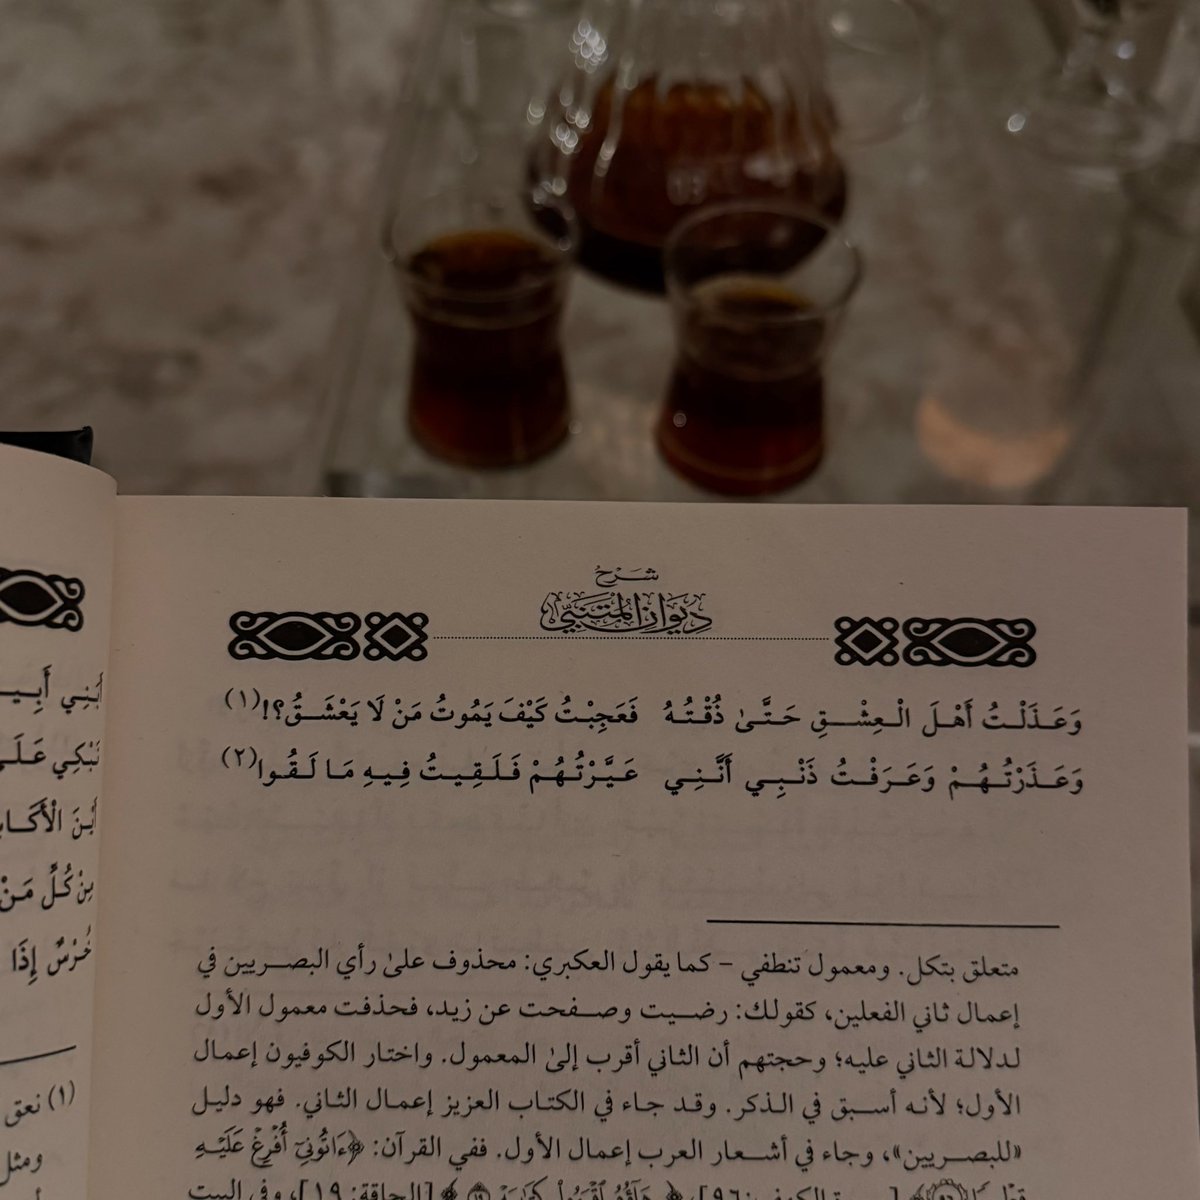 شرح
ديوان المتنبي
وَعَذَلْتُ أَهْلَ الْعِشْقِ حَتَّىٰ ذُقْتُهُ فَعَجِبْتُ كَيْفَ يَمُوتُ مَنْ لَا يَعْشَقُ؟!(١)
وَعَذَرْتُهُمْ وَعَرَفْتُ ذَنْبِي أَنَّنِي عَيَّرْتُهُمْ فَلَقِيتُ فِيهِ مَا لَقُوا(٢)
متعلق بتكل. ومعمول تنطفي – كما يقول العكبري: محذوف علىٰ رأي البصريين في
إعمال ثاني الفعلين، كقولك: رضيت وصفحت عن زيد، فحذفت معمول الأول
لدلالة الثاني عليه؛ وحجتهم أن الثاني أقرب إلىٰ المعمول. واختار الكوفيون إعمال
الأول؛ لأنه أسبق في الذكر. وقد جاء في الكتاب العزيز إعمال الثاني. فهو دليل
«للبصريين»، وجاء في أشعار العرب إعمال الأول. ففي القرآن: ﴿ءَاتُونِيٓ أُفۡرِغۡ عَلَيۡهِ
[الحاقة: ١٩]، وفي البيت
أَبَنِي أَبِينَا
نَبْكِي عَلَى
أَيْنَ الْأَكَا
مِنْ كُلِّ مَنْ
خُرْسٌ إِذَا
(١) نعق
ومثل